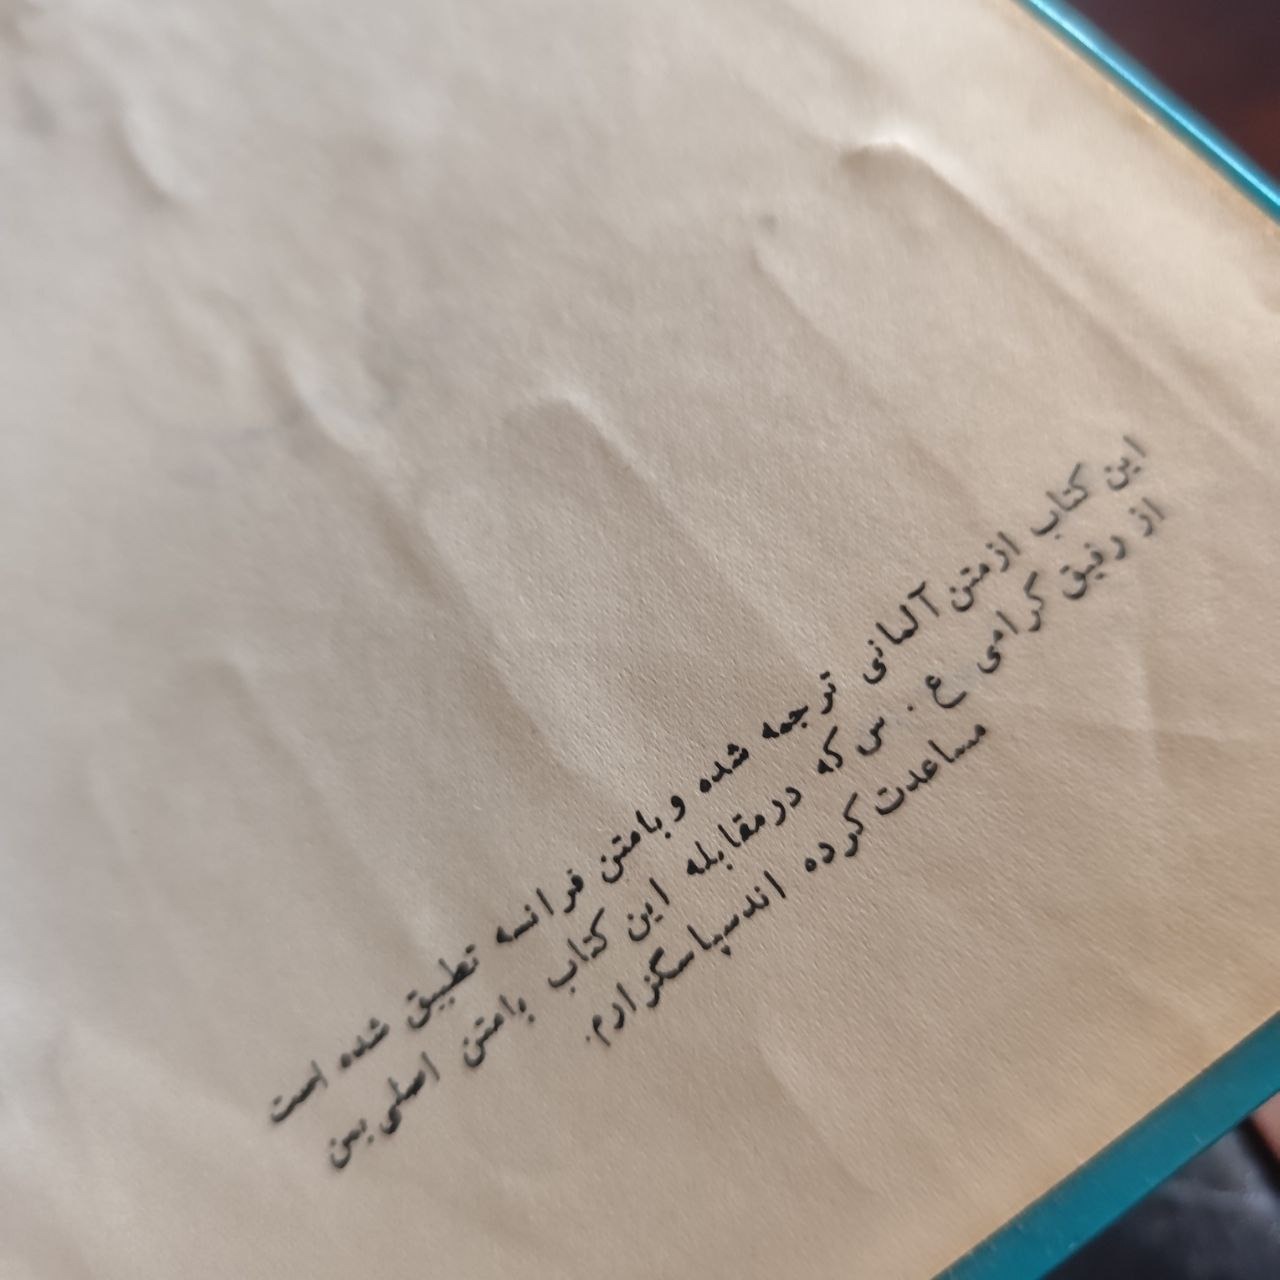 این کتاب از متن آلمانی ترجمه شده و با متن فرانسه تطبیق شده است
از رفیق گرامی ع . س که در مقابله این کتاب با متن اصلی بمن
مساعدت کرده اند سپاسگزارم.